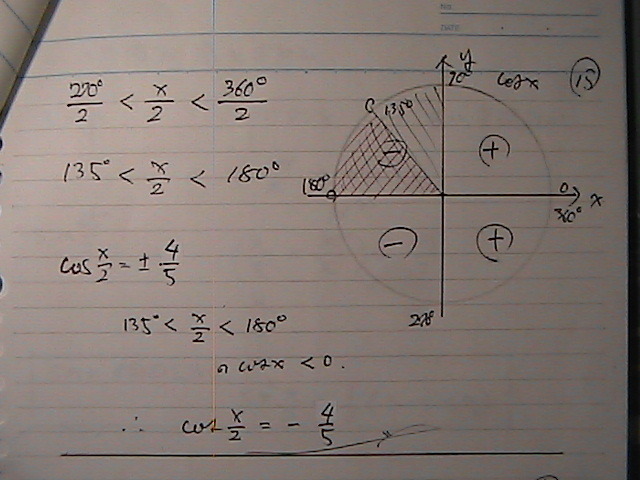 NO.
DATE
270°/2 < x/2 < 360°/2
135° < x/2 < 180°
cos x/2 = ± 4/5
135° < x/2 < 180°
cos x < 0.
∴ cos x/2 = - 4/5
y
90°
cos x
15
135°
−
+
180°
0
360°
x
−
+
270°